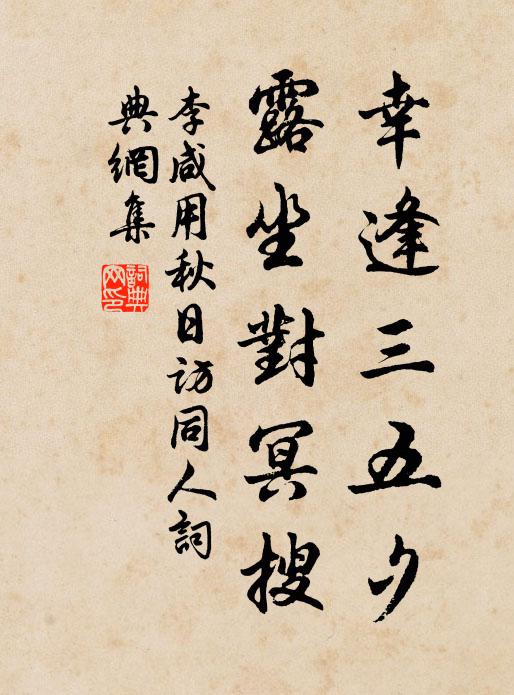 幸逢三五夕
露坐對冥搜
李咸用秋日访同人詞
典網集
詞典
网印